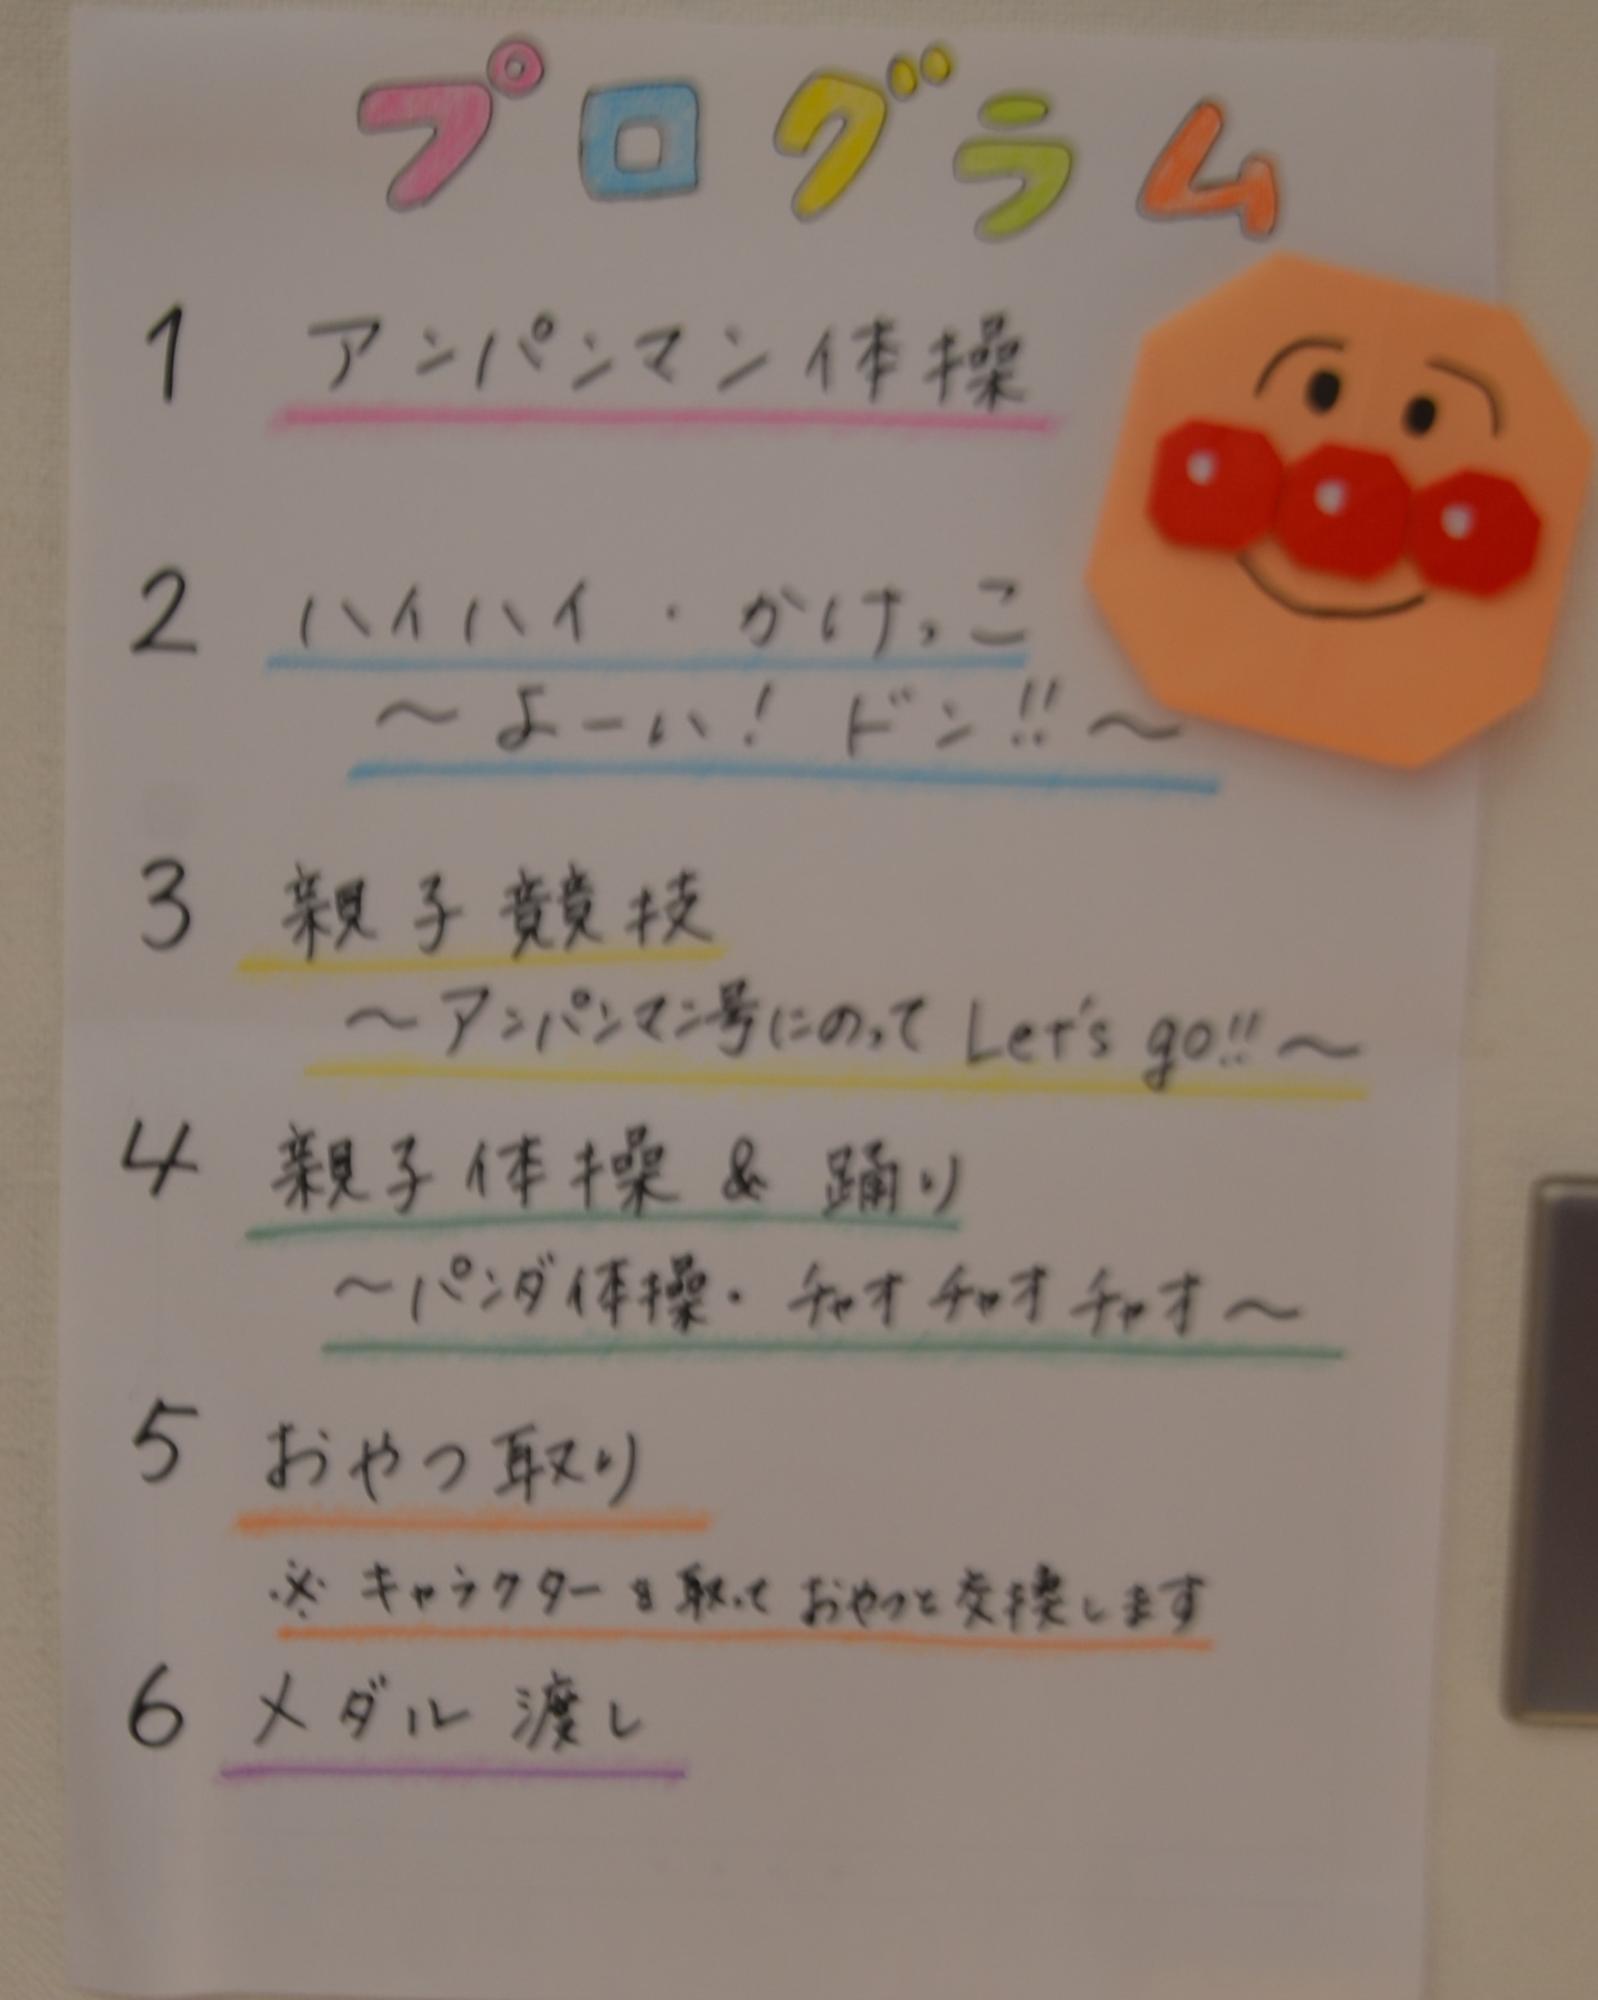 プログラム
1 アンパンマン体操
2 ハイハイ・かけっこ
～よーい! ドン!!～
3 親子競技
～アンパンマン号にのって Let's go!!～
4 親子体操 & 踊り
～パンダ体操・チャオチャオチャオ～
5 おやつ取り
※ キャラクターを取っておやつと交換します
6 メダル渡し